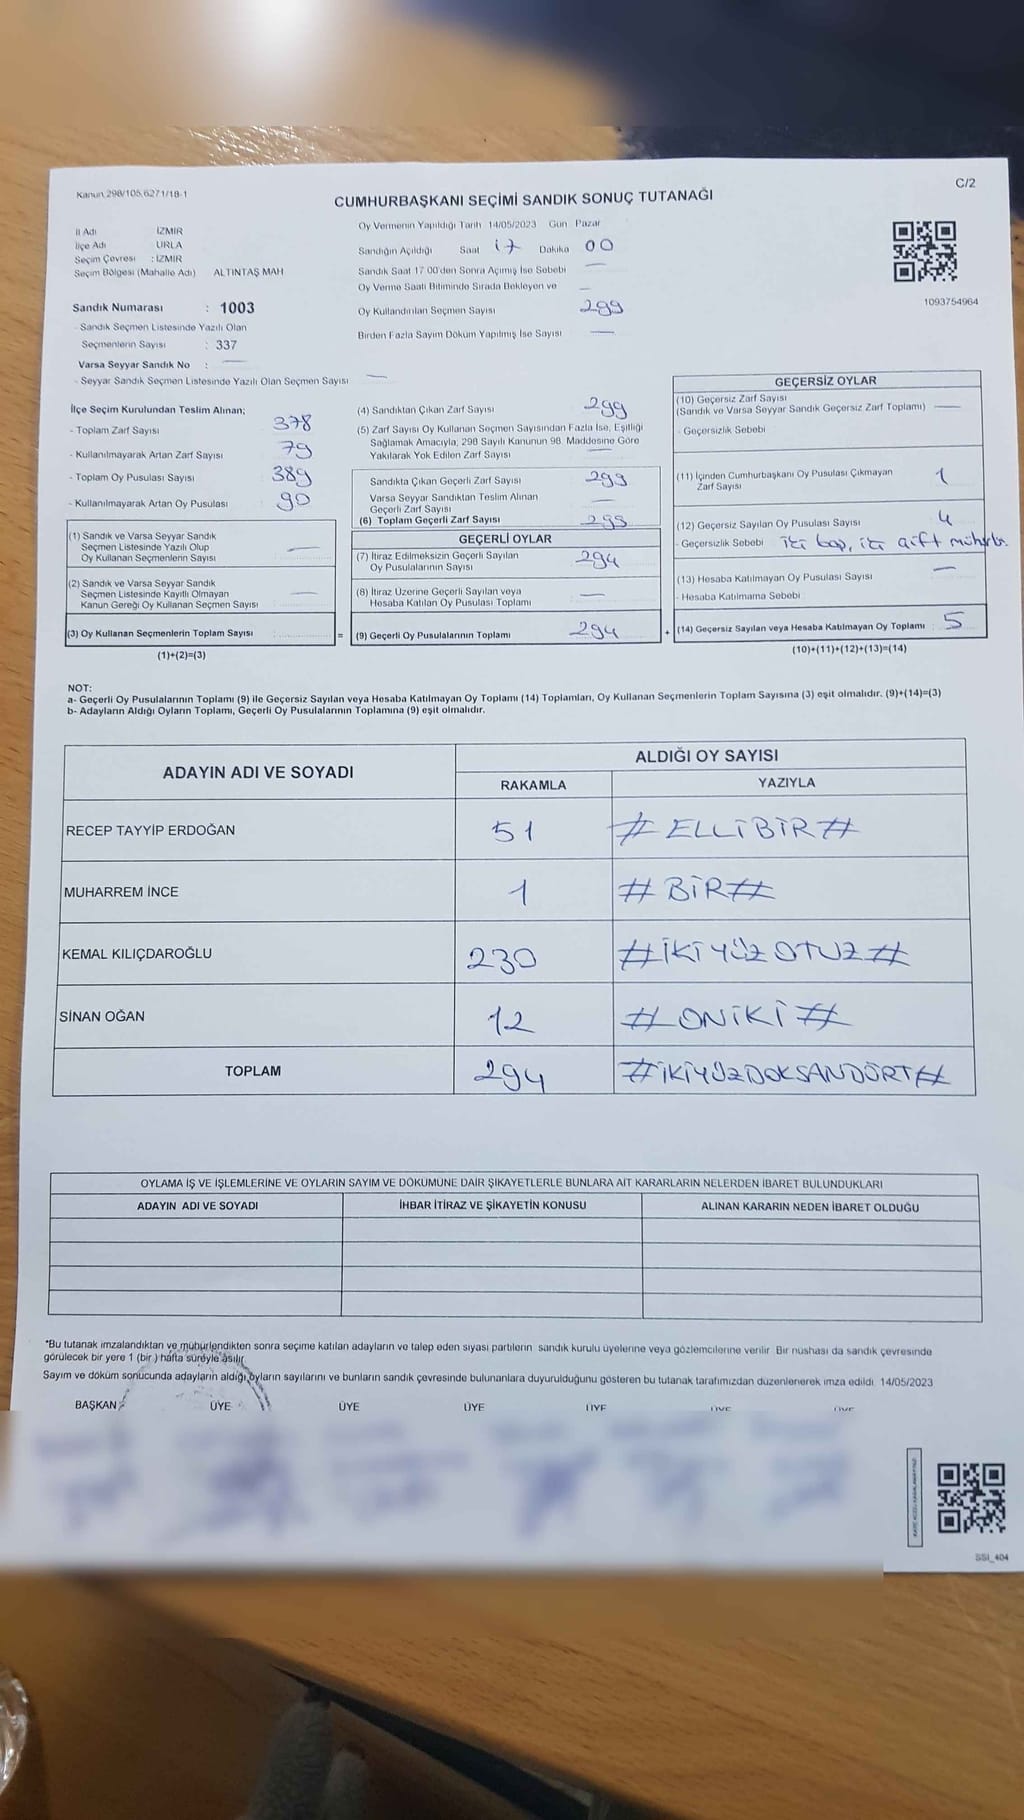 Kanun 298/105,6271/18-1
C/2
CUMHURBAŞKANI SEÇİMİ SANDIK SONUÇ TUTANAĞI
İl Adı İZMİR
İlçe Adı URLA
Seçim Çevresi : İZMİR
Seçim Bölgesi (Mahalle Adı) ALTINTAŞ MAH
Sandık Numarası : 1003
- Sandık Seçmen Listesinde Yazılı Olan
Seçmenlerin Sayısı : 337
Varsa Seyyar Sandık No : —
- Seyyar Sandık Seçmen Listesinde Yazılı Olan Seçmen Sayısı —
Oy Vermenin Yapıldığı Tarih 14/05/2023 Gün Pazar
Sandığın Açıldığı Saat 17 Dakika 00
Sandık Saat 17 00'den Sonra Açımış İse Sebebi —
Oy Verme Saati Bitiminde Sırada Bekleyen ve —
Oy Kullandırılan Seçmen Sayısı 299
Birden Fazla Sayım Döküm Yapılmış İse Sayısı —
1093754964
İlçe Seçim Kurulundan Teslim Alınan;
- Toplam Zarf Sayısı 378
- Kullanılmayarak Artan Zarf Sayısı 79
- Toplam Oy Pusulası Sayısı 389
- Kullanılmayarak Artan Oy Pusulası 90
(1) Sandık ve Varsa Seyyar Sandık
Seçmen Listesinde Yazılı Olup
Oy Kullanan Seçmenlerin Sayısı —
(2) Sandık ve Varsa Seyyar Sandık
Seçmen Listesinde Kayıtlı Olmayan
Kanun Gereği Oy Kullanan Seçmen Sayısı —
(3) Oy Kullanan Seçmenlerin Toplam Sayısı
(1)+(2)=(3)
(4) Sandıktan Çıkan Zarf Sayısı 299
(5) Zarf Sayısı Oy Kullanan Seçmen Sayısından Fazla İse, Eşitliği
Sağlamak Amacıyla, 298 Sayılı Kanunun 98. Maddesine Göre
Yakılarak Yok Edilen Zarf Sayısı —
Sandıkta Çıkan Geçerli Zarf Sayısı 299
Varsa Seyyar Sandıktan Teslim Alınan
Geçerli Zarf Sayısı —
(6) Toplam Geçerli Zarf Sayısı 299
GEÇERLİ OYLAR
(7) İtiraz Edilmeksizin Geçerli Sayılan
Oy Pusulalarının Sayısı 294
(8) İtiraz Üzerine Geçerli Sayılan veya
Hesaba Katılan Oy Pusulası Toplamı —
= (9) Geçerli Oy Pusulalarının Toplamı 294
GEÇERSİZ OYLAR
(10) Geçersiz Zarf Sayısı
(Sandık ve Varsa Seyyar Sandık Geçersiz Zarf Toplamı) —
- Geçersizlik Sebebi
(11) İçinden Cumhurbaşkanı Oy Pusulası Çıkmayan
Zarf Sayısı 1
(12) Geçersiz Sayılan Oy Pusulası Sayısı 4
- Geçersizlik Sebebi iki boş, iki çift mühür
(13) Hesaba Katılmayan Oy Pusulası Sayısı —
- Hesaba Katılmama Sebebi
+ (14) Geçersiz Sayılan veya Hesaba Katılmayan Oy Toplamı : 5
(10)+(11)+(12)+(13)=(14)
NOT:
a- Geçerli Oy Pusulalarının Toplamı (9) ile Geçersiz Sayılan veya Hesaba Katılmayan Oy Toplamı (14) Toplamları, Oy Kullanan Seçmenlerin Toplam Sayısına (3) eşit olmalıdır. (9)+(14)=(3)
b- Adayların Aldığı Oyların Toplamı, Geçerli Oy Pusulalarının Toplamına (9) eşit olmalıdır.
ADAYIN ADI VE SOYADI ALDIĞI OY SAYISI
RAKAMLA YAZIYLA
RECEP TAYYİP ERDOĞAN 51 # ELLİBİR #
MUHARREM İNCE 1 # BİR #
KEMAL KILIÇDAROĞLU 230 # İKİYÜZOTUZ #
SİNAN OĞAN 12 # ONİKİ #
TOPLAM 294 # İKİYÜZDOKSANDÖRT #
OYLAMA İŞ VE İŞLEMLERİNE VE OYLARIN SAYIM VE DÖKÜMÜNE DAİR ŞİKAYETLERLE BUNLARA AİT KARARLARIN NELERDEN İBARET BULUNDUKLARI
ADAYIN ADI VE SOYADI İHBAR İTİRAZ VE ŞİKAYETİN KONUSU ALINAN KARARIN NEDEN İBARET OLDUĞU
*Bu tutanak imzalandıktan ve mühürlendikten sonra seçime katılan adayların ve talep eden siyasi partilerin sandık kurulu üyelerine veya gözlemcilerine verilir Bir nüshası da sandık çevresinde
görülecek bir yere 1 (bir ) hafta süreyle asılır
Sayım ve döküm sonucunda adayların aldığı oyların sayılarını ve bunların sandık çevresinde bulunanlara duyurulduğunu gösteren bu tutanak tarafımızdan düzenlenerek imza edildi. 14/05/2023
BAŞKAN ÜYE ÜYE ÜYE ÜYE ÜYE ÜYE
SSI_404